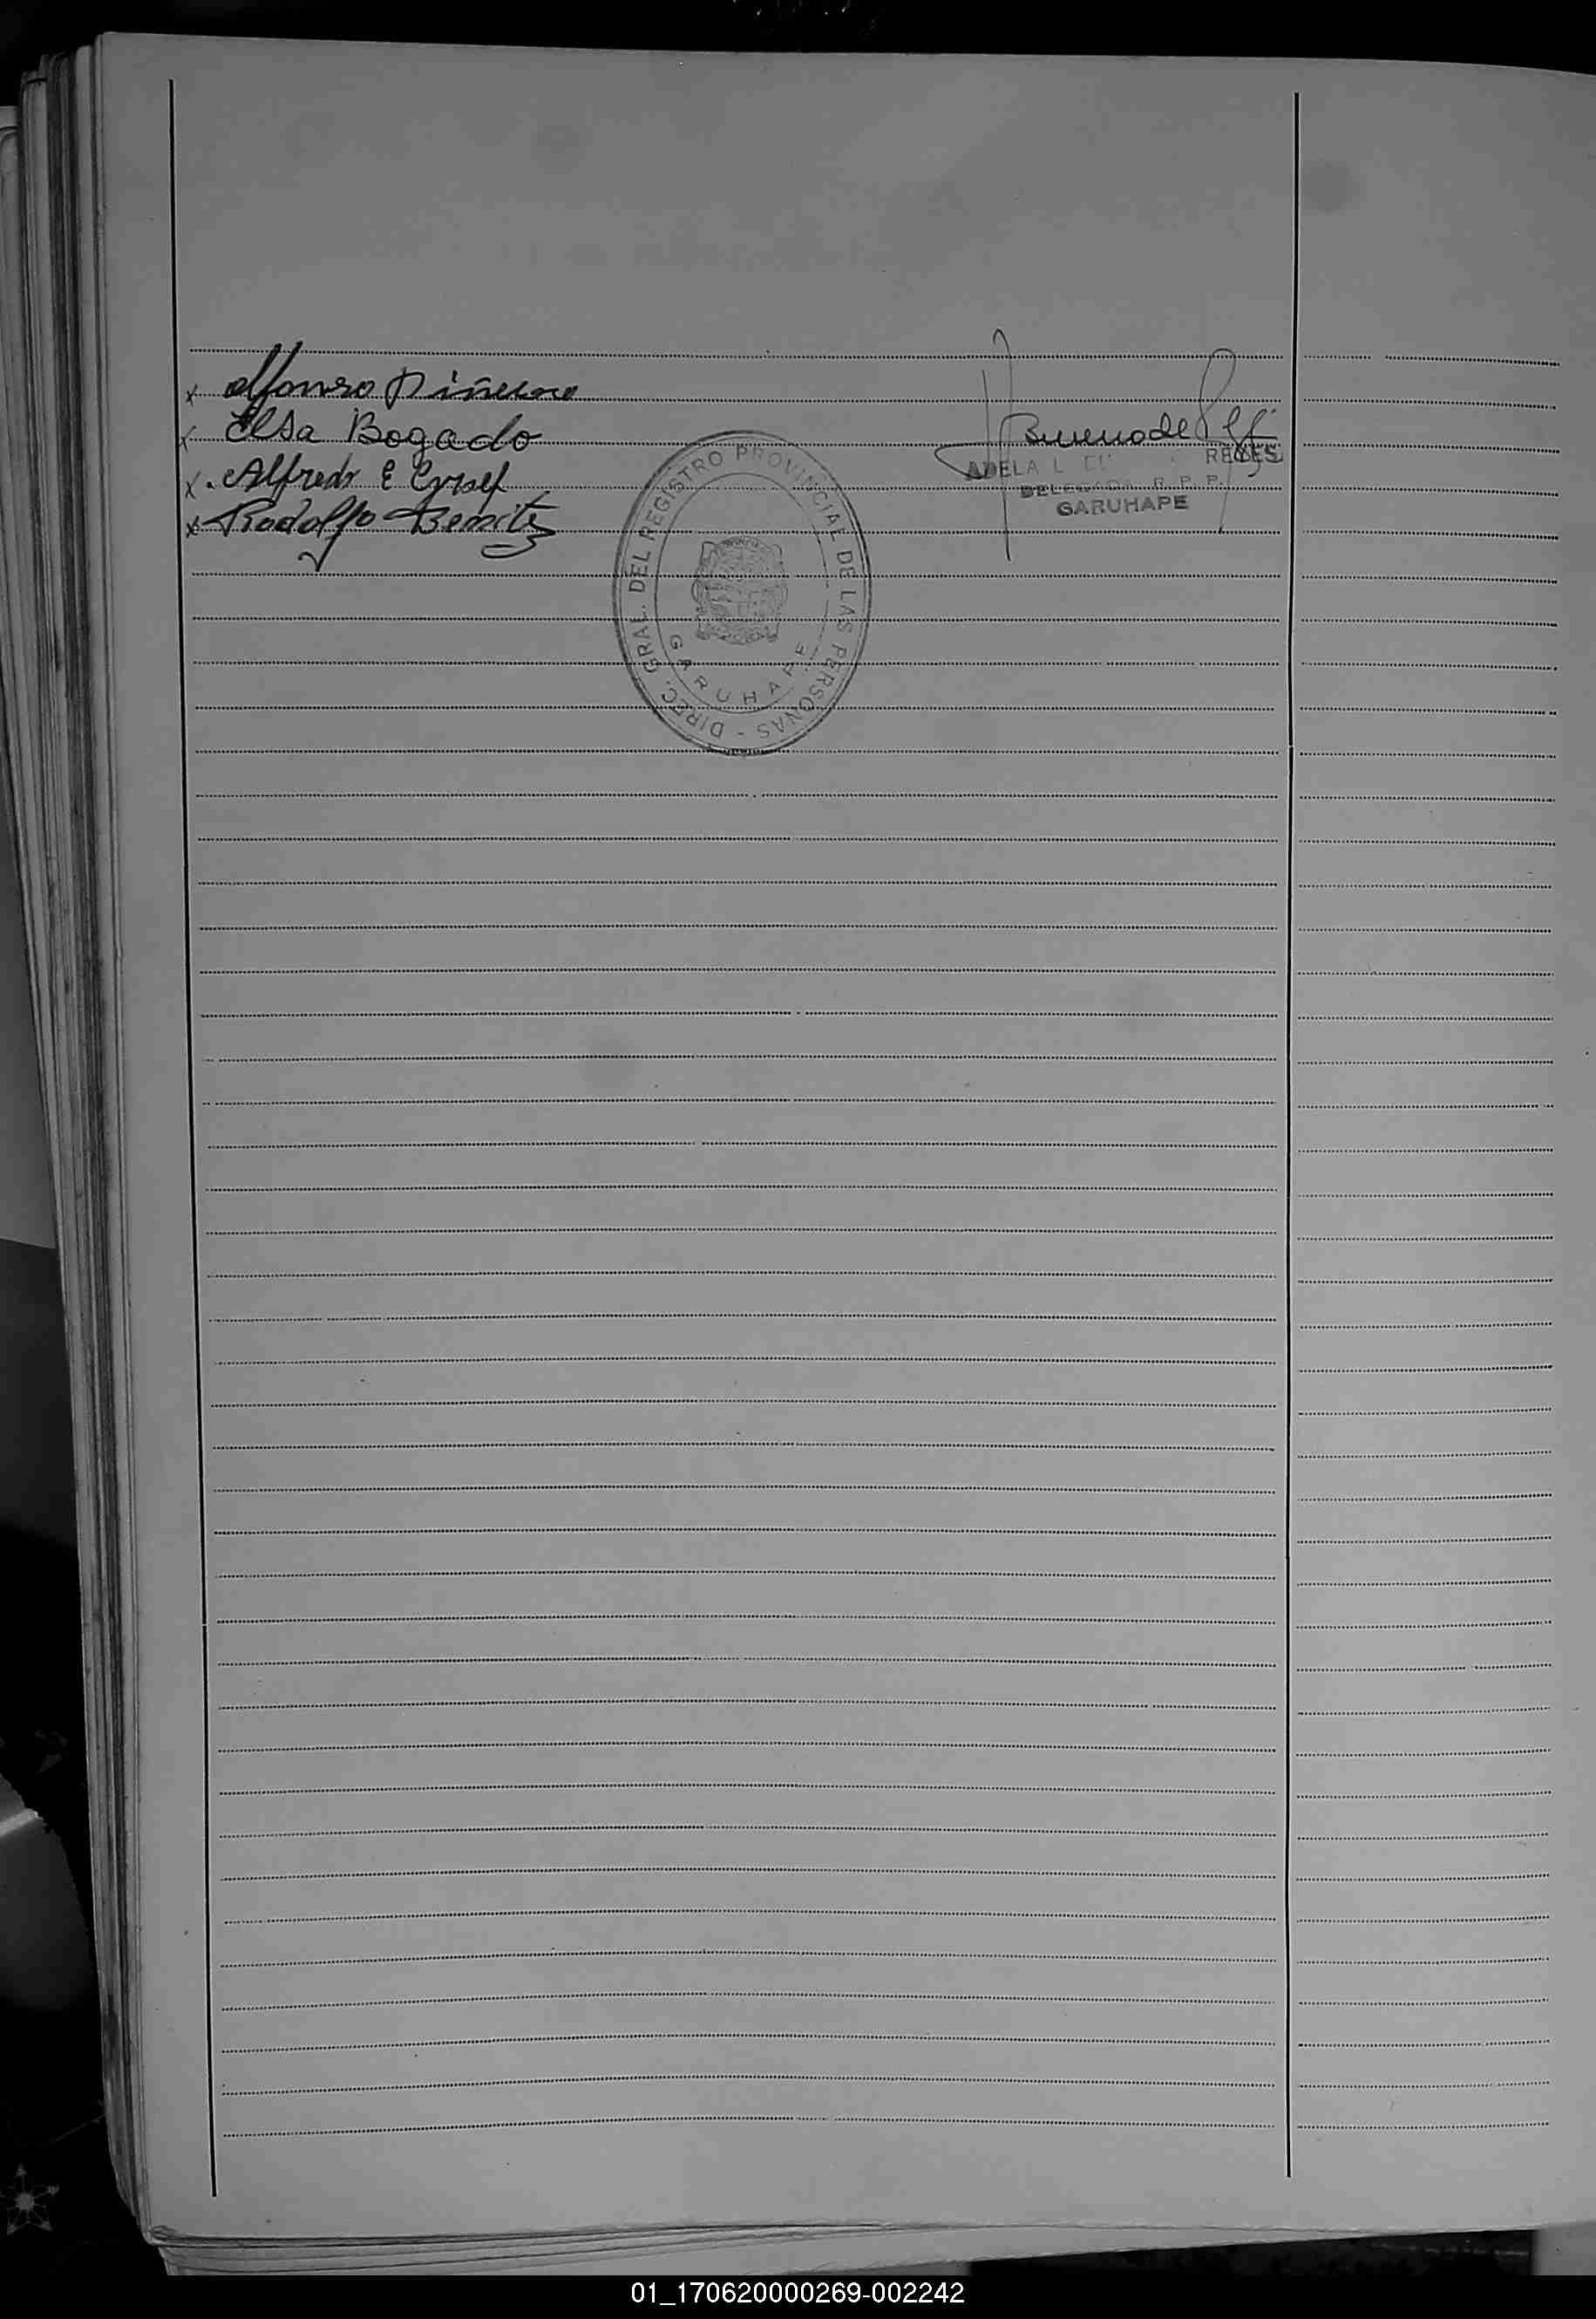 x Alfonso Piñeiro
x Elsa Bogado
x Alfredo E
x Rodolfo Benitez
Bueno de
ADELA L REYES
DELEGADA R. P. P.
GARUHAPE
DIREC. GRAL. DEL REGISTRO PROVINCIAL DE LAS PERSONAS -
GARUHAPE
01_170620000269-002242